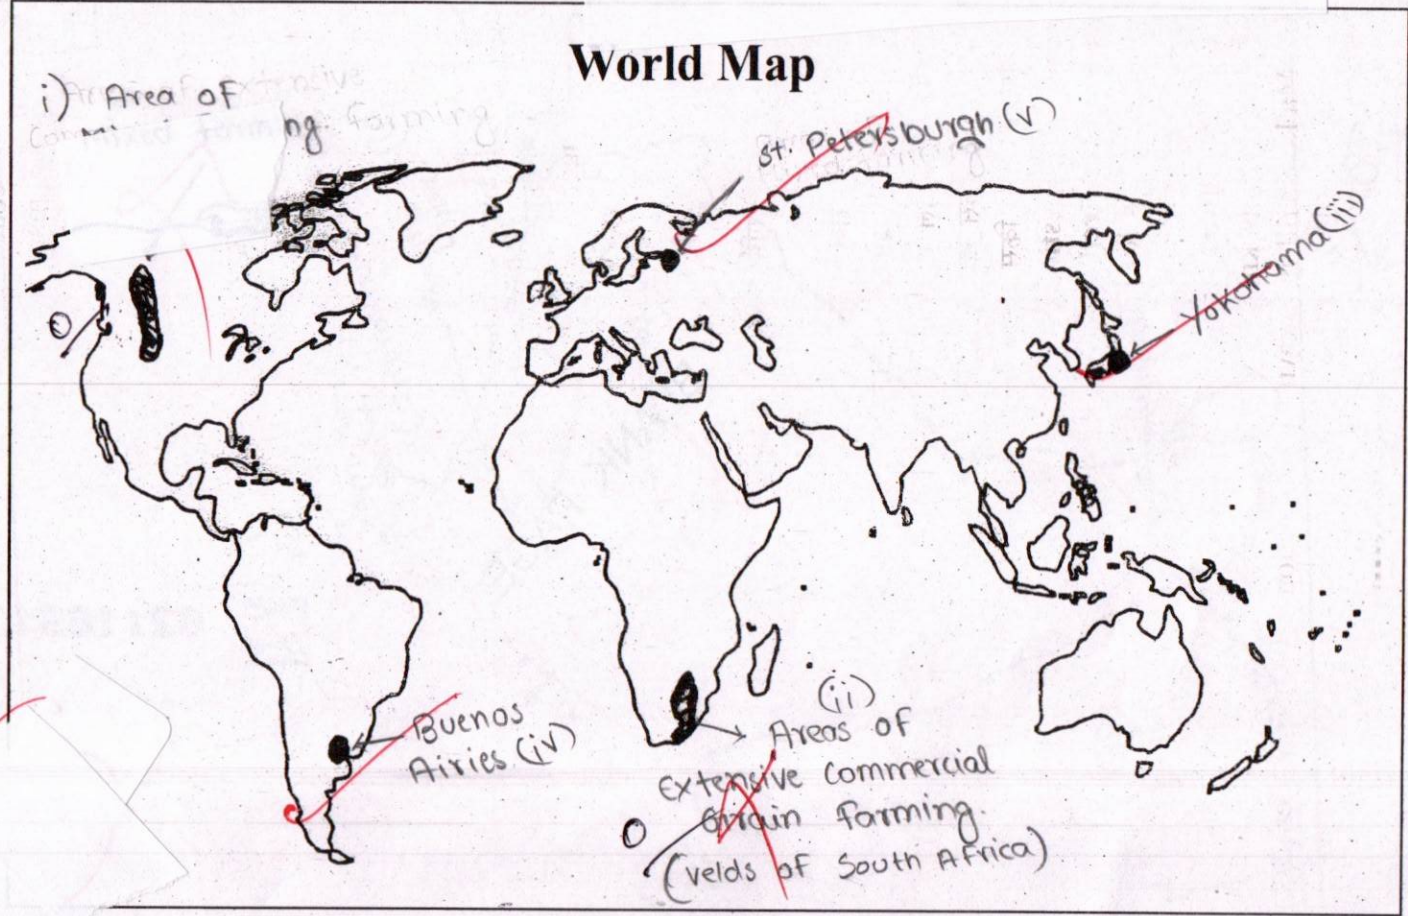 World Map
i) Area of
Mixed farming.
St. Petersburgh (v)
Yokohama (iii)
Buenos
Airies (iv)
(ii)
Areas of
Extensive commercial
Grain farming
(velds of South Africa)
0
0